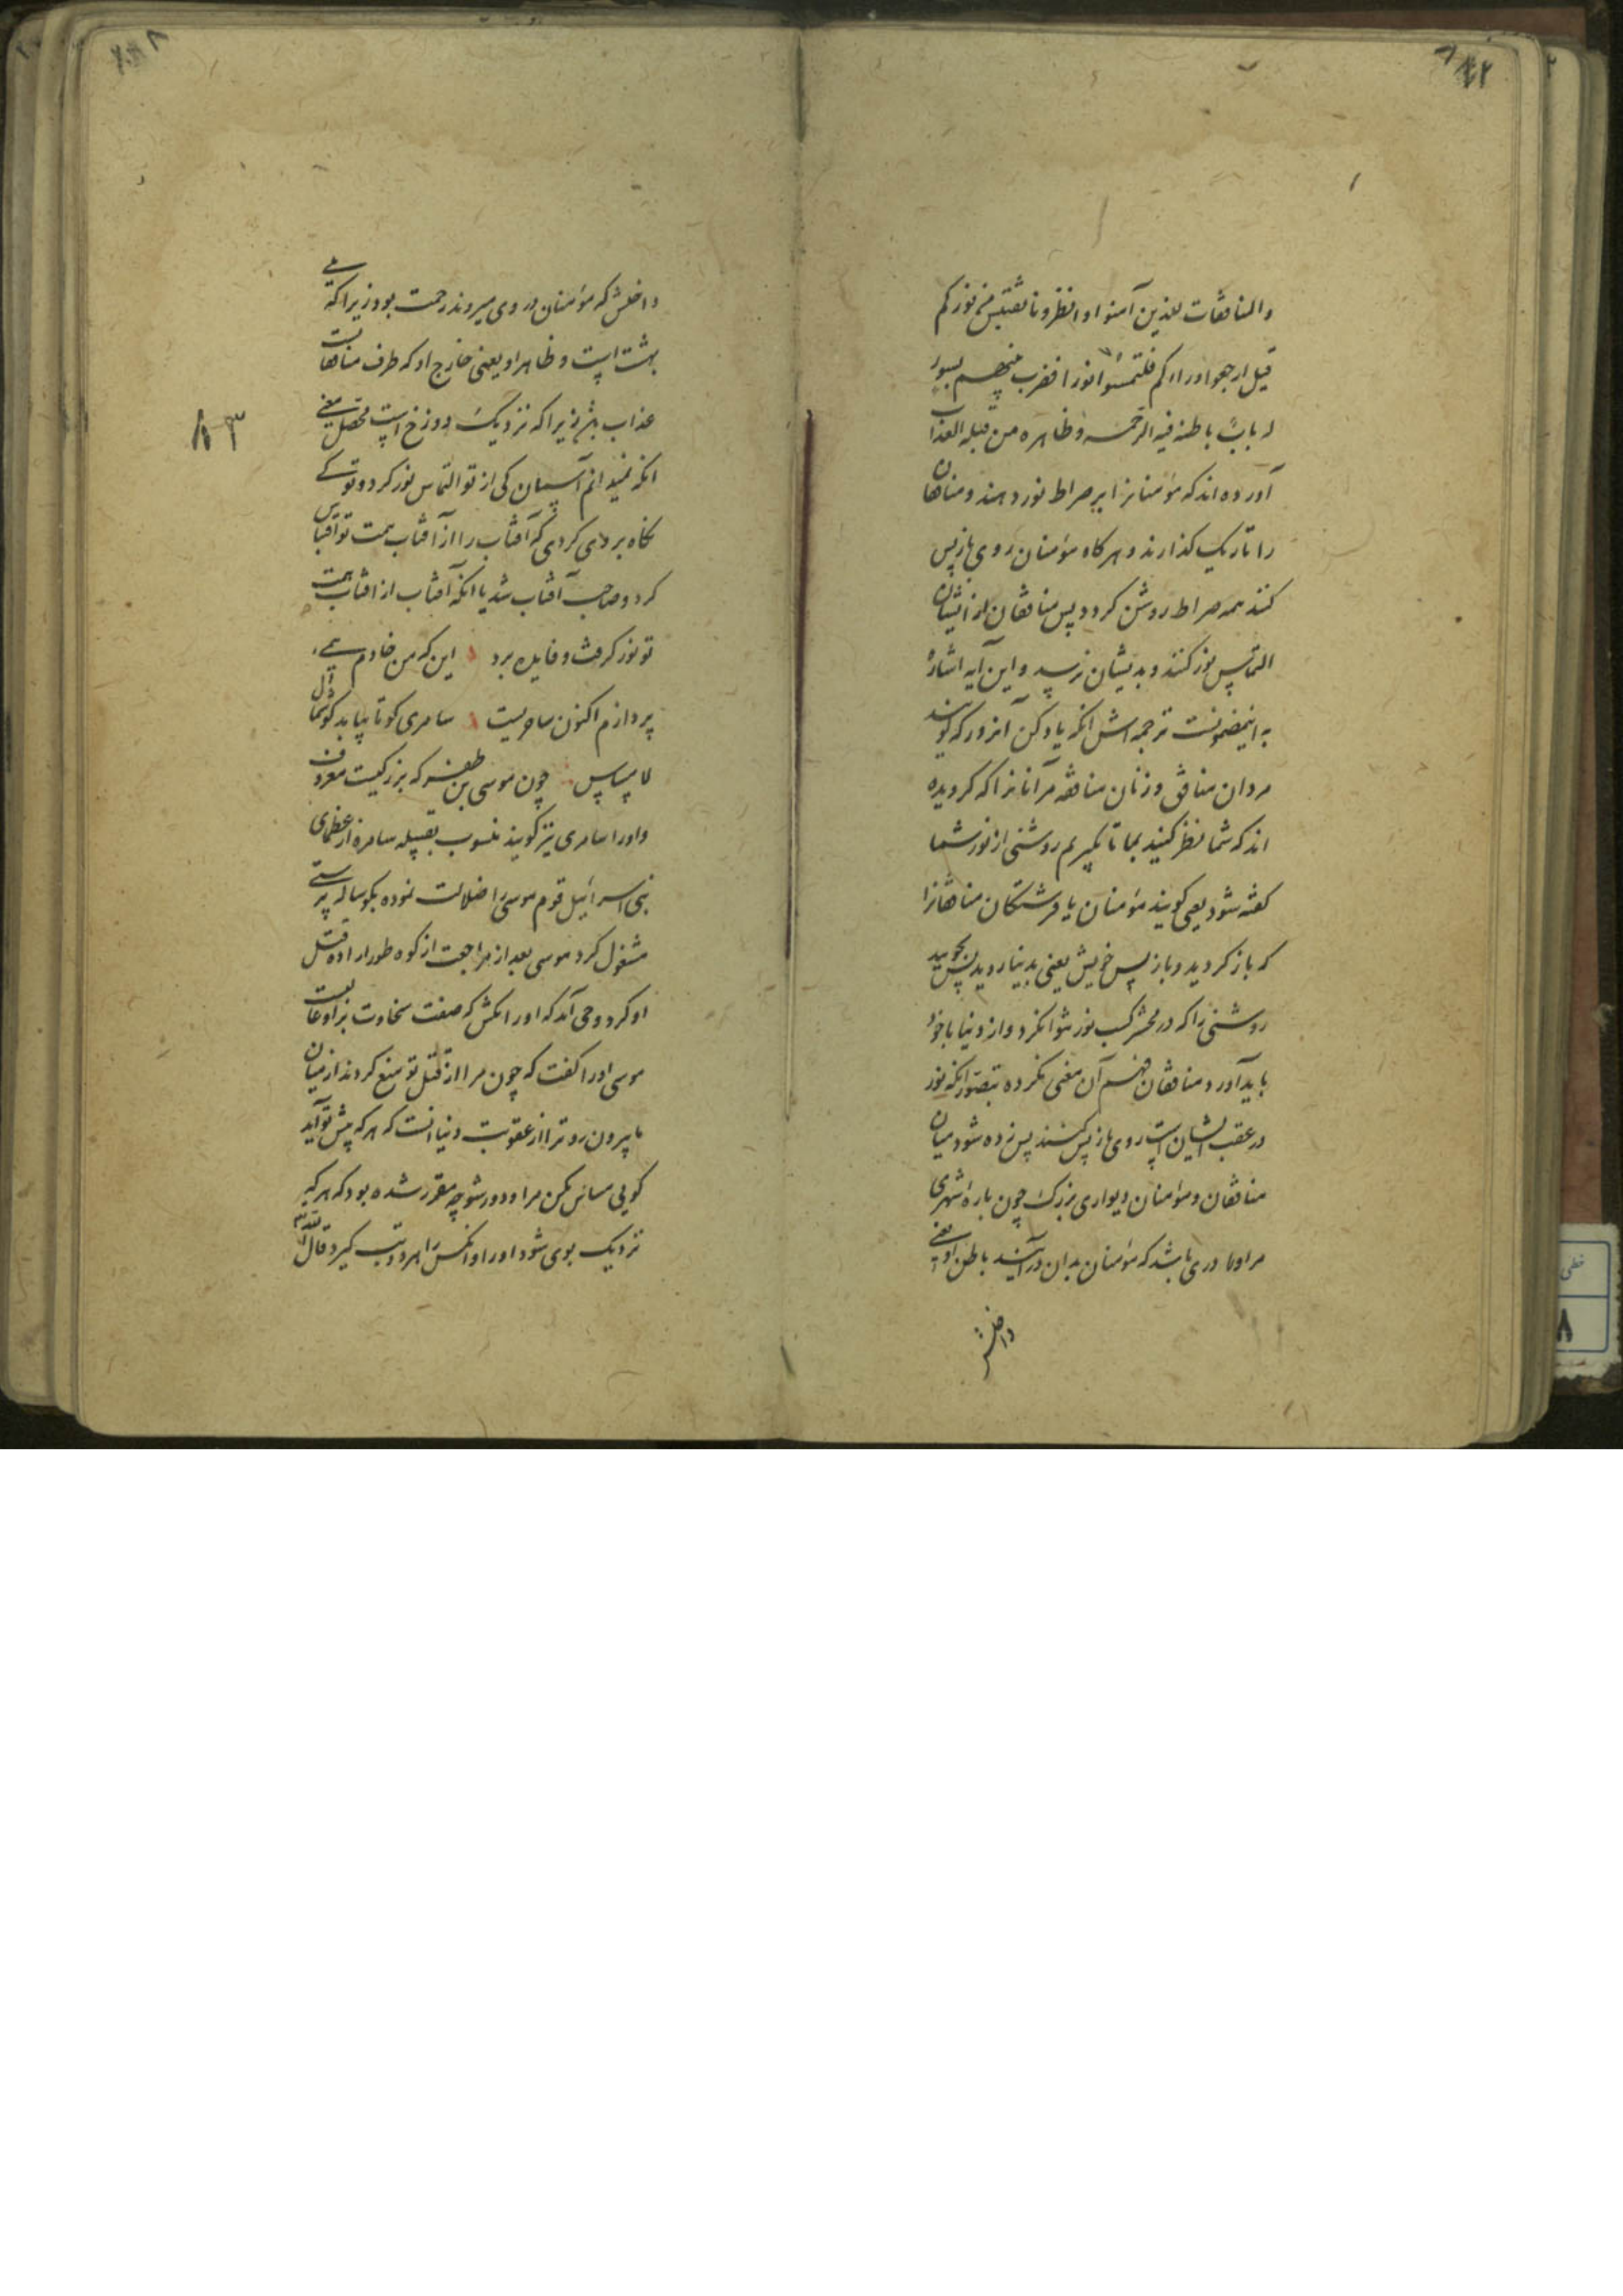 والمنافقات للذین آمنوا انظرونا نقتبس من نورکم
قیل ارجعوا وراءکم فالتمسوا نورا فضرب بینهم بسور
له باب باطنه فیه الرحمة و ظاهره من قبله العذاب
آورده اند که مؤمنانرا بر صراط نور دهند و منافقان
را تاریک کذارند و هرکاه مؤمنان روی بازپس
کنند همه صراط روشن کردد پس منافقان از ایشان
التماس نور کنند و بدیشان نرسد و این آیه اشارة
به اینمضمونست ترجمه اش انکه یاد کن آنروز که کویند
مردان منافق و زنان منافقه مر آنانرا که کرویده
اند که شما نظر کنید بما تا بکیریم روشنی از نور شما
کفته شود یعنی کویند مؤمنان یا فرشتکان منافقانرا
که باز کردید و باز پس خویش یعنی بدنیا روید پس بجویید
روشنی را که در محشر کسب نور نتوان کرد و از دنیا با خود
باید آورد و منافقان فهم آن معنی نکرده بتصور انکه نور
در عقب ایشان است روی بازپس کنند پس زده شود میان
منافقان و مؤمنان دیواری بزرک چون باره شهری
مر اورا دری باشد که مؤمنان بدان درآیند باطن او یعنی
داخلش
داخلش که مؤمنان در وی میروند رحمت بود زیرا که
بهشت است و ظاهر او یعنی خارج او که طرف منافقانست
عذاب زیرا که نزدیک دوزخ است محصل معنی
انکه نمیدانم آسمان کی از تو التماس نور کرد و تو کی
نکاه بر وی کردی که آفتاب را از آفتاب همت تو اقتباس
کرد و صاحب آفتاب شد یا انکه آفتاب از افتاب همت
تو نور کرفت و فایده برد این که من خادم
پردازم اکنون ساحریست سامری کو تا بیابد کوشمال
لامساس چون موسی بن ظفر که بزرکیست معروف
و اورا سامری نیز کویند منسوب بقبیله سامره از عظمای
بنی اسرائیل قوم موسی را ضلالت نموده بکوساله پرستی
مشغول کرد موسی بعد از مراجعت از کوه طور اراده قتل
او کرد وحی آمد که اورا مکش که صفت سخاوت بر او غالبست
موسی اورا کفت که چون مرا از قتل تو منع کردند از میان
ما بیرون رو ترا از عقوبت دنیا انست که هرکه پیش تو آید
کویی مساس مکن مرا و دور شو چه مقرر شده بود که هرکه
نزدیک بوی شود اورا و انکس را هردو تب کیرد قال الله
۸۳